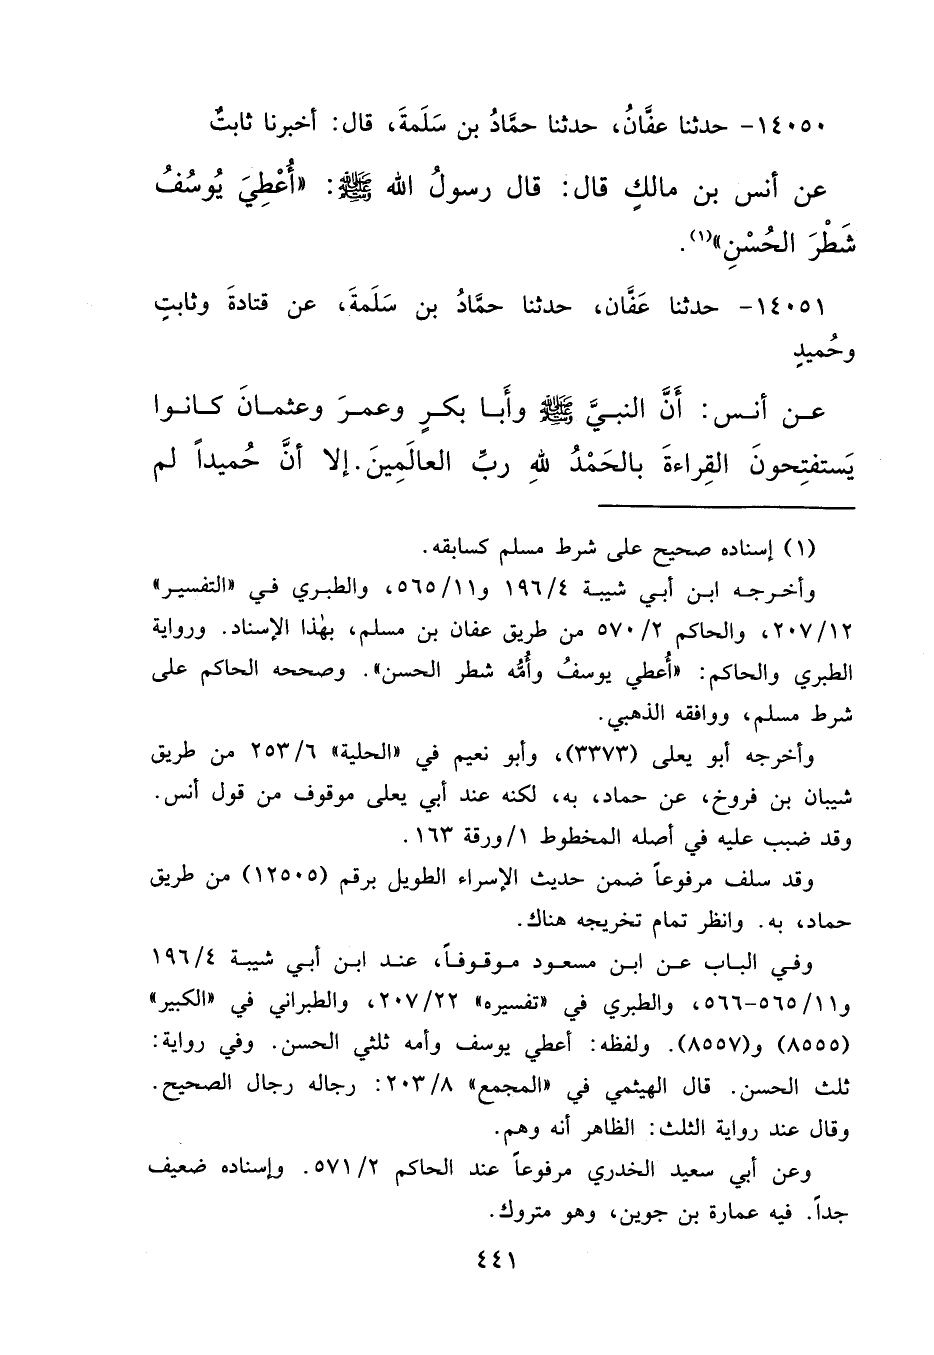 ١٤٠٥٠- حدثنا عفَّانُ، حدثنا حمَّادُ بن سَلَمةَ، قال: أخبرنا ثابتٌ
عن أنس بن مالكٍ قال: قال رسولُ الله ﷺ: «أُعْطِيَ يُوسُفُ
شَطْرَ الحُسْنِ»(١).
١٤٠٥١- حدثنا عَفَّان، حدثنا حمَّادُ بن سَلَمةَ، عن قتادةَ وثابتٍ
وحُميدٍ
عن أنس: أَنَّ النبيَّ ﷺ وأَبا بكرٍ وعمرَ وعثمانَ كانوا
يَستفتِحونَ القِراءةَ بالحَمْدُ للهِ ربِّ العالَمِينَ. إلا أنَّ حُميداً لم
(١) إسناده صحيح على شرط مسلم كسابقه.
وأخرجه ابن أبي شيبة ١٩٦/٤ و٥٦٥/١١، والطبري في «التفسير»
٢٠٧/١٢، والحاكم ٥٧٠/٢ من طريق عفان بن مسلم، بهٰذا الإسناد. ورواية
الطبري والحاكم: «أُعطي يوسفُ وأُمُّه شطر الحسن». وصححه الحاكم على
شرط مسلم، ووافقه الذهبي.
وأخرجه أبو يعلى (٣٣٧٣)، وأبو نعيم في «الحلية» ٢٥٣/٦ من طريق
شيبان بن فروخ، عن حماد، به، لكنه عند أبي يعلى موقوف من قول أنس.
وقد ضبب عليه في أصله المخطوط ١/ورقة ١٦٣.
وقد سلف مرفوعاً ضمن حديث الإسراء الطويل برقم (١٢٥٠٥) من طريق
حماد، به. وانظر تمام تخريجه هناك.
وفي الباب عن ابن مسعود موقوفاً، عند ابن أبي شيبة ١٩٦/٤
و٥٦٥/١١-٥٦٦، والطبري في «تفسيره» ٢٠٧/٢٢، والطبراني في «الكبير»
(٨٥٥٥) و(٨٥٥٧). ولفظه: أعطي يوسف وأمه ثلثي الحسن. وفي رواية:
ثلث الحسن. قال الهيثمي في «المجمع» ٢٠٣/٨: رجاله رجال الصحيح.
وقال عند رواية الثلث: الظاهر أنه وهم.
وعن أبي سعيد الخدري مرفوعاً عند الحاكم ٥٧١/٢. وإسناده ضعيف
جداً. فيه عمارة بن جوين، وهو متروك.
٤٤١